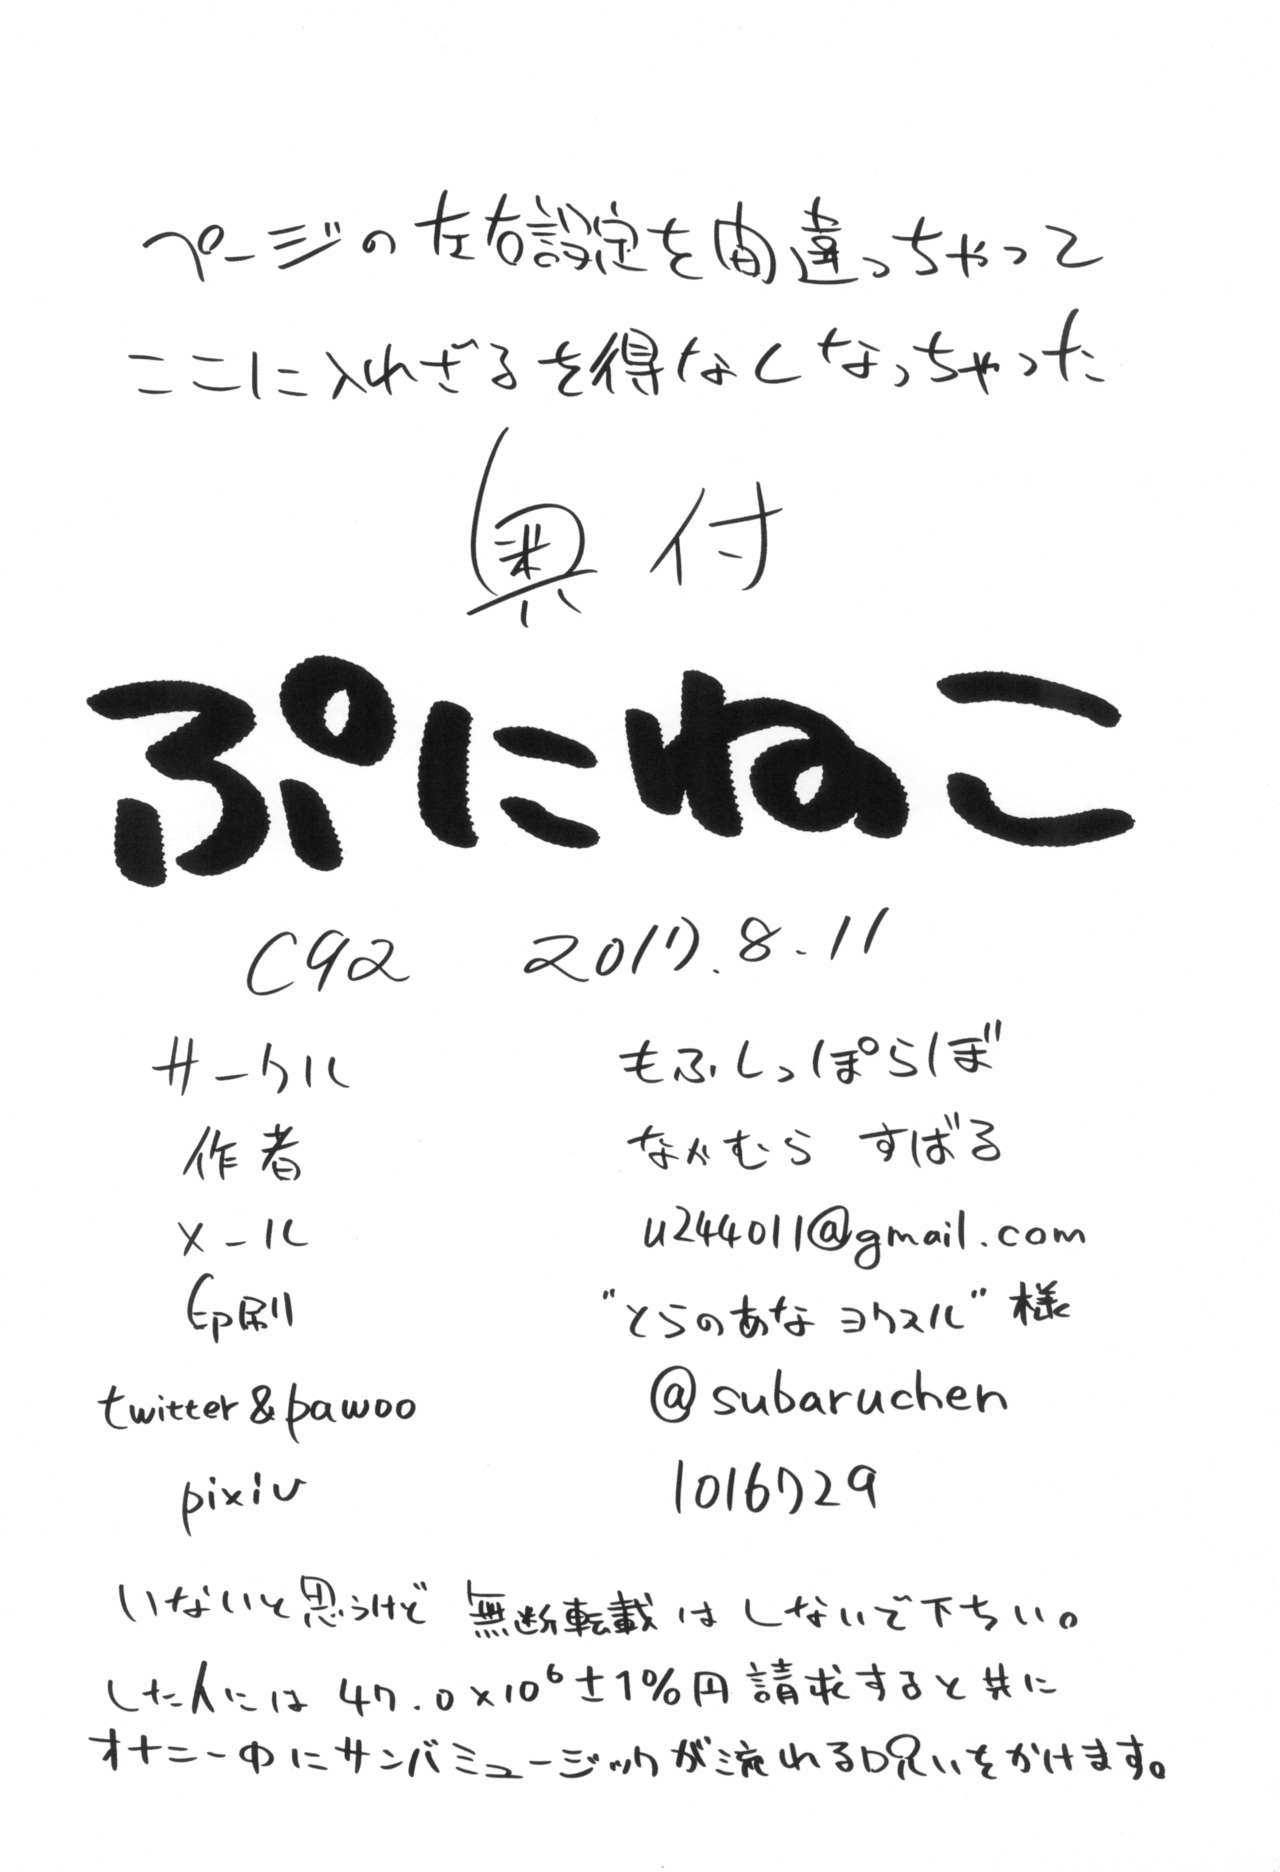 ページの左右設定を間違っちゃって
ここに入れざるを得なくなっちゃった
奥付
ぷにねこ
C92 2017.8.11
サークル もふしっぽらぼ
作者 なかむら すばる
メール u244011@gmail.com
印刷 "とらのあな ヨクスル" 様
twitter&pawoo @subaruchen
pixiv 1016729
いないと思うけど 無断転載はしないで下ちい。
した人には 47.0×10⁶±1%円 請求すると共に
オナニー中にサンバミュージックが流れる呪いをかけます。